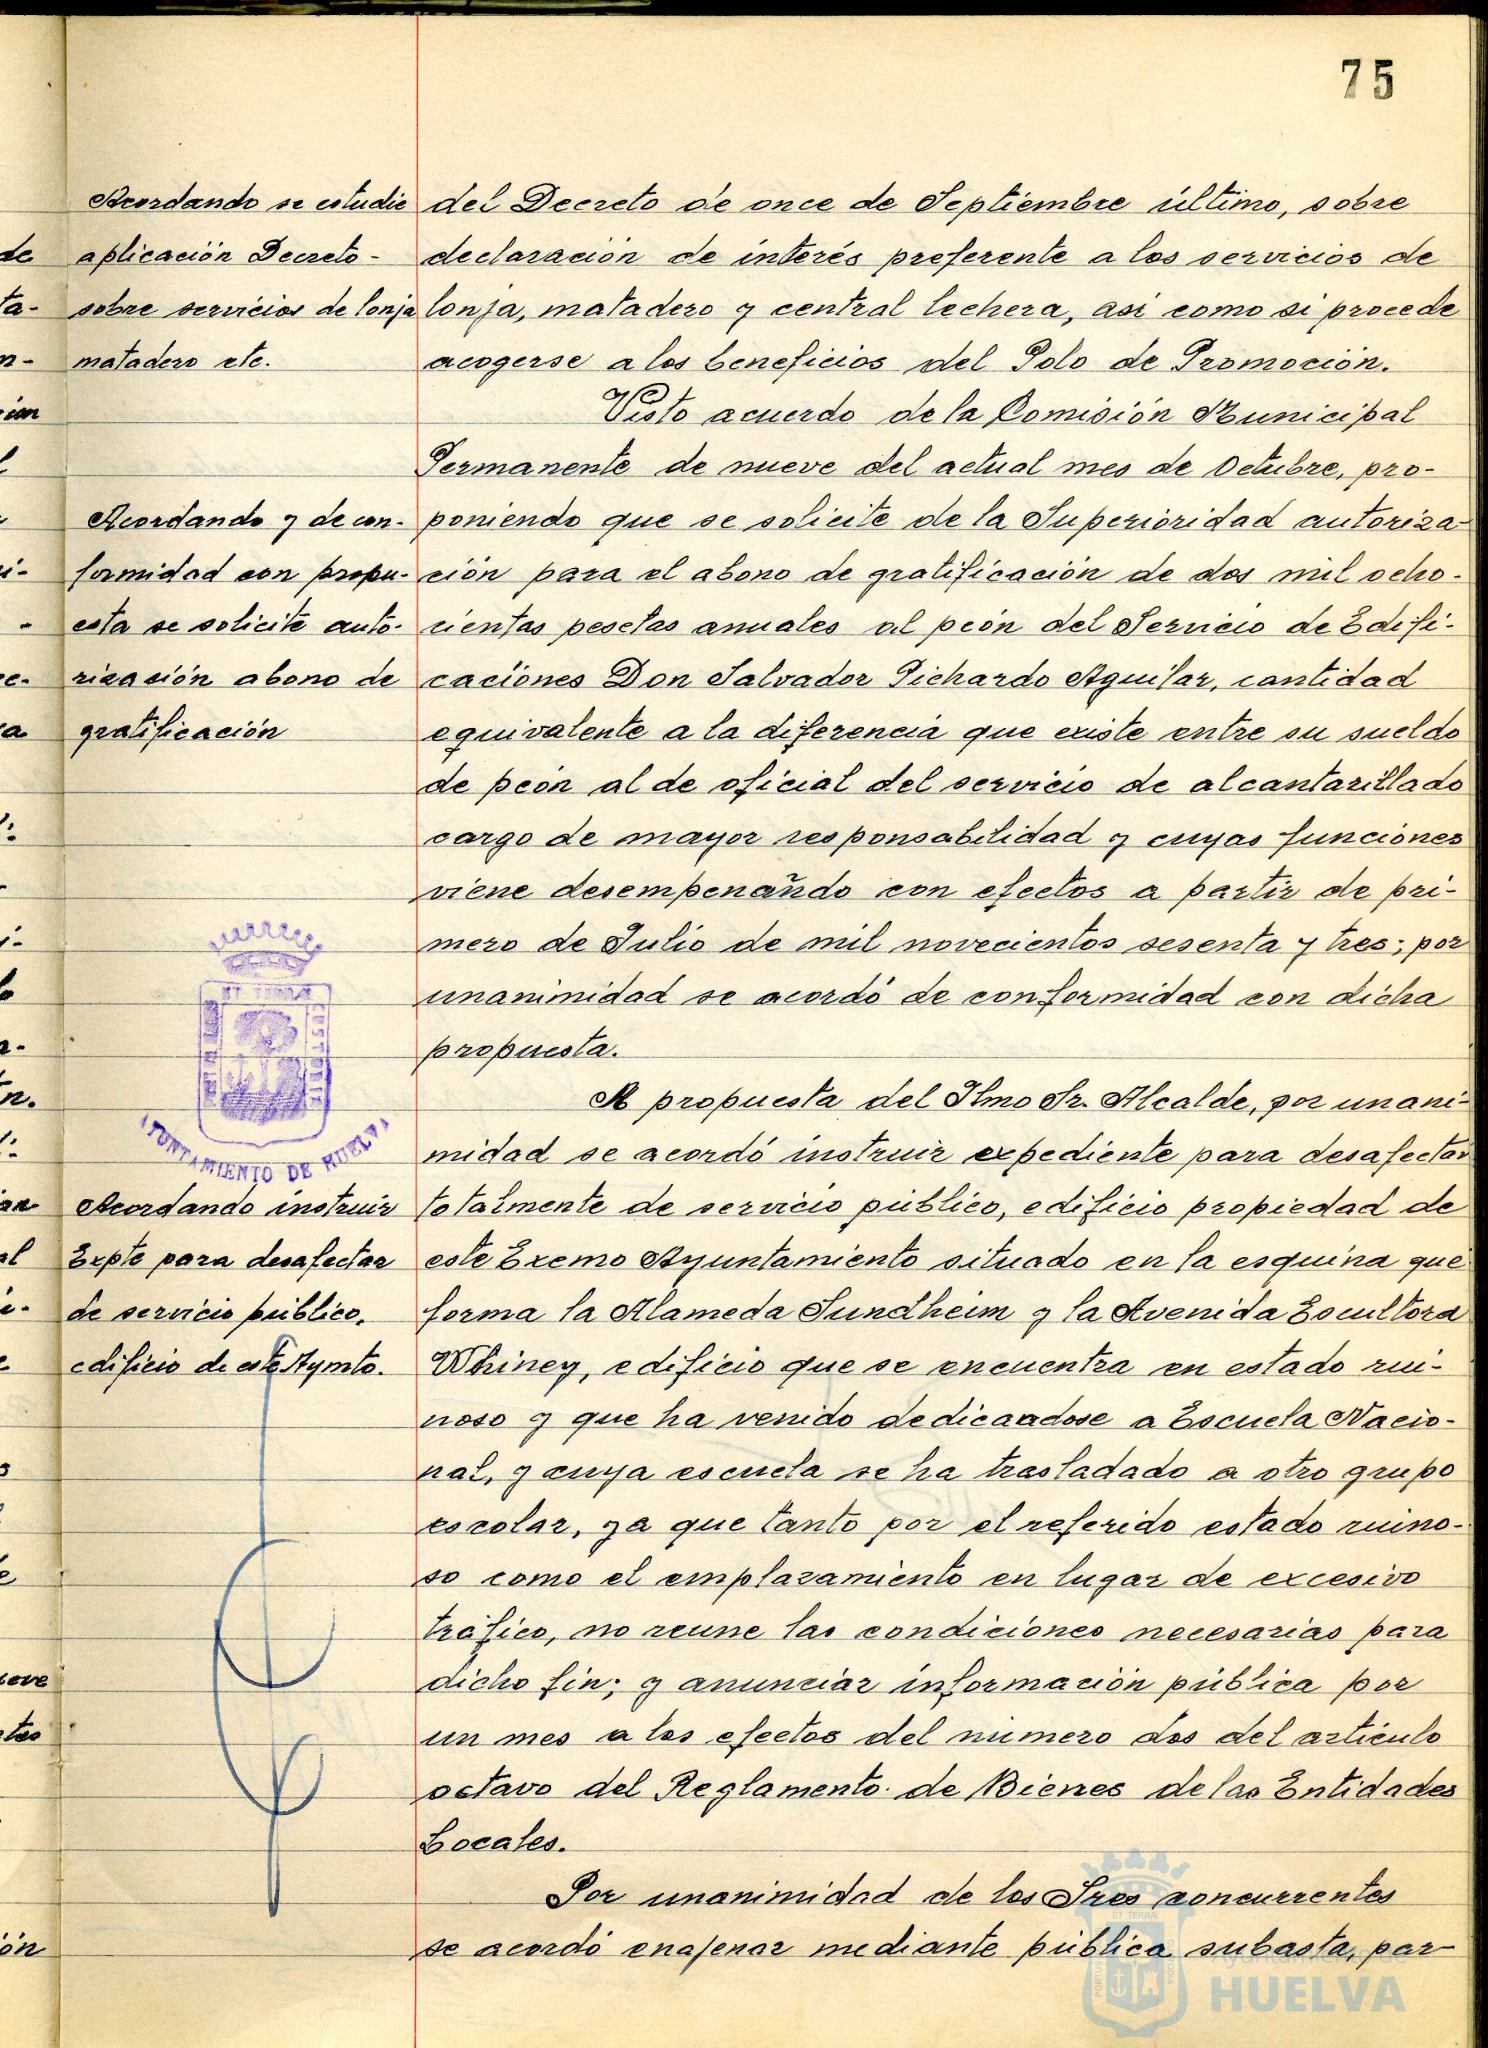 75
Acordando se estudie
aplicación Decreto-
sobre servicios de lonja
matadero etc.
del Decreto de once de Septiembre último, sobre
declaración de interés preferente a los servicios de
lonja, matadero y central lechera, asi como si procede
acogerse a los beneficios del Polo de Promoción.
Visto acuerdo de la Comisión Municipal
Permanente de nueve del actual mes de Octubre, pro-
Acordando y de con-
formidad con propu-
esta se solicite auto-
rización abono de
gratificación
poniendo que se solicite de la Superioridad autoriza-
ción para el abono de gratificación de dos mil ocho-
cientas pesetas anuales al peón del Servicio de Edifi-
caciones Don Salvador Pichardo Aguilar, cantidad
equivalente a la diferencia que existe entre su sueldo
de peón al de oficial del servicio de alcantarillado
cargo de mayor responsabilidad y cuyas funciones
viene desempenañdo con efectos a partir de pri-
mero de Julio de mil novecientos sesenta y tres; por
unanimidad se acordó de conformidad con dicha
propuesta.
AYUNTAMIENTO DE HUELVA
A propuesta del Ilmo Sr. Alcalde, por unani-
midad se acordó instruir expediente para desafectar
Acordando instruir
Expte para desafectar
de servicio público,
edificio de este Aymto.
totalmente de servicio público, edificio propiedad de
este Excmo Ayuntamiento situado en la esquina que
forma la Alameda Sundheim y la Avenida Escultora
Whiney, edificio que se encuentra en estado rui-
noso y que ha venido dedicandose a Escuela Nacio-
nal, y cuya escuela se ha trasladado a otro grupo
escolar, ya que tanto por el referido estado ruino-
so como el emplazamiento en lugar de excesivo
tráfico, no reune las condiciones necesarias para
dicho fin; y anunciar información pública por
un mes a los efectos del número dos del artículo
octavo del Reglamento de Bienes de las Entidades
Locales.
Por unanimidad de los Sres concurrentes
se acordó enajenar mediante pública subasta, par-
Ayuntamiento de
HUELVA